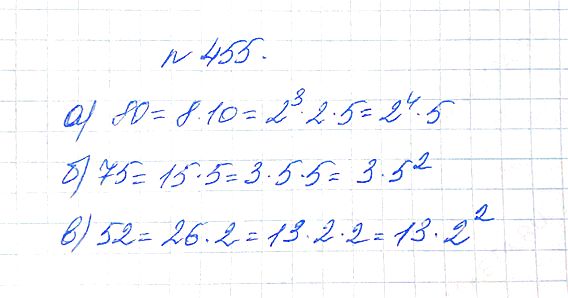 № 455.
а) 80 = 8·10 = 2³·2·5 = 2⁴·5
б) 75 = 15·5 = 3·5·5 = 3·5²
в) 52 = 26·2 = 13·2·2 = 13·2²